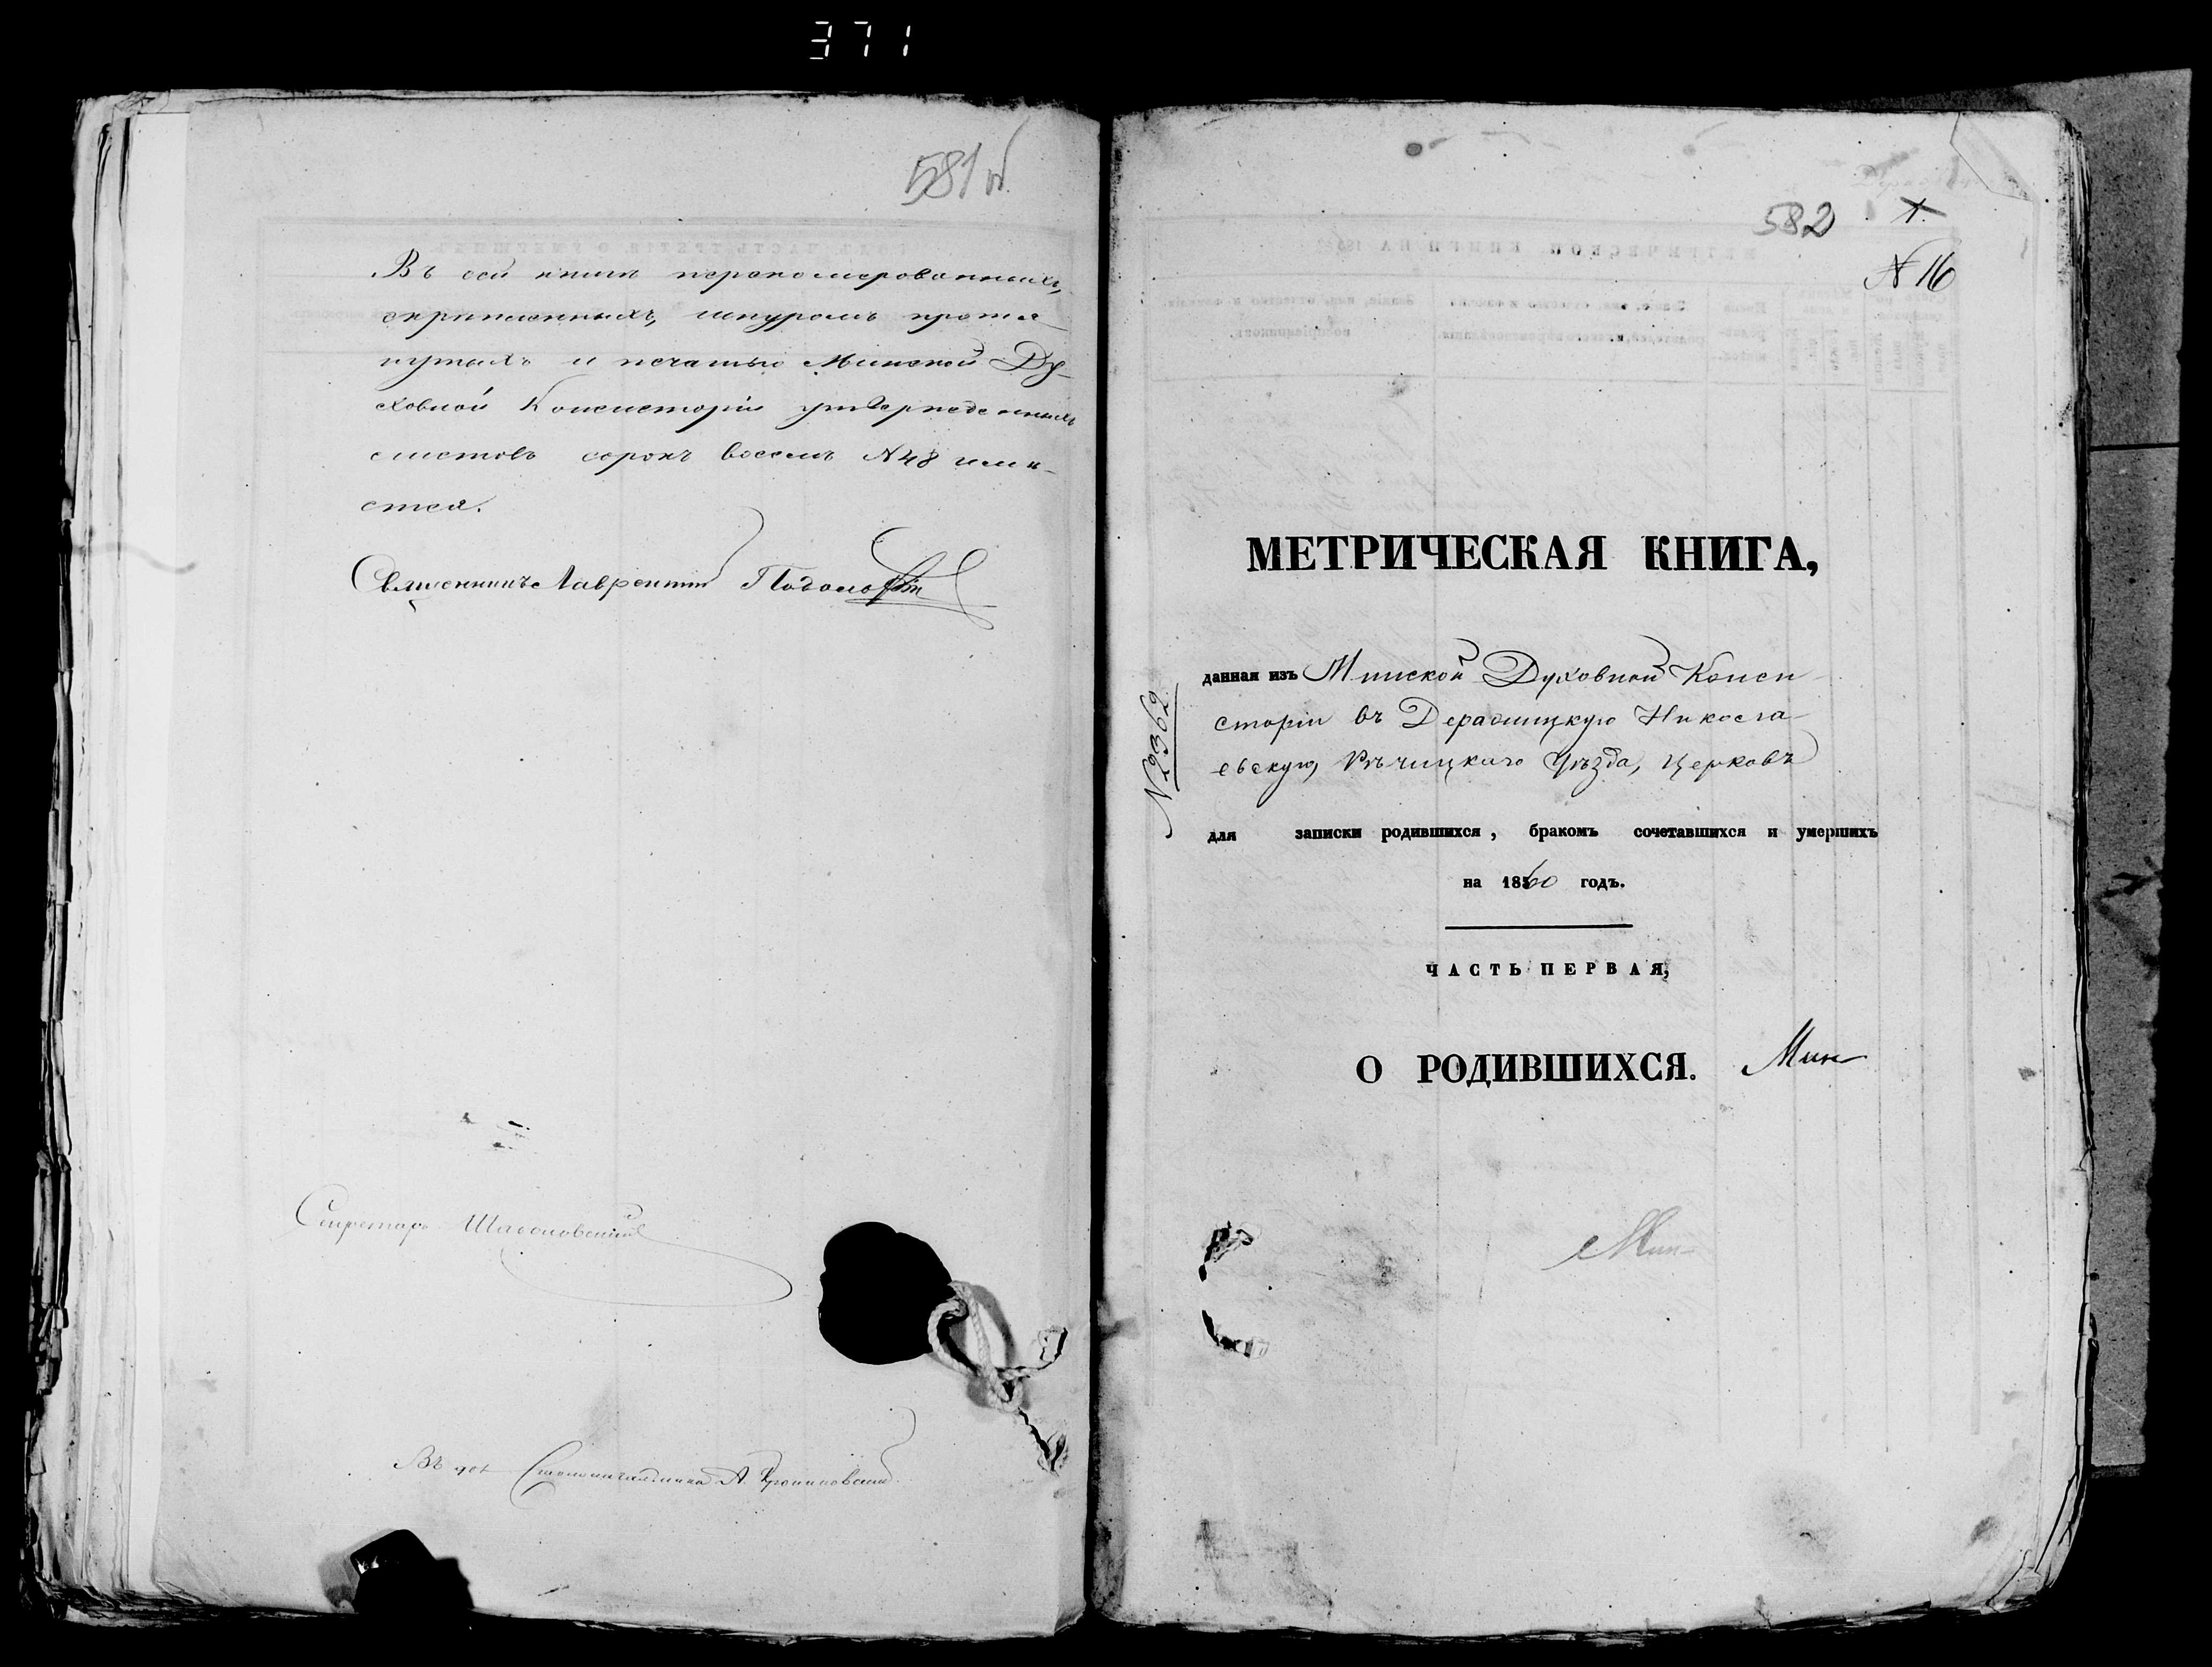 371
581 об.
Въ сей книгѣ переномерованныхъ,
скрѣпленныхъ, шнуромъ протя-
нутыхъ и печатью Минской Ду-
ховной Консисторіи утвержденныхъ
листовъ сорокъ восемь №48 имѣ-
ется.
Священникъ Лаврентій
Секретарь
Въ дол. Столоначальника А.
582
1.
№ 16
МЕТРИЧЕСКАЯ КНИГА,
данная изъ Минской Духовной Конси-
сторіи въ Деражицкую Никола-
евскую, Рѣчицкаго Уѣзда, Церковь
№ 2362
для записки родившихся, бракомъ сочетавшихся и умершихъ
на 1860 годъ.
ЧАСТЬ ПЕРВАЯ,
О РОДИВШИХСЯ. Мин-
Мин-